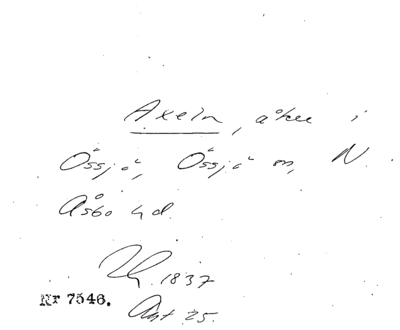 Axeln, åker i
Össjö, Össjö sn, N.
Åsbo hd.
1837
Nr 7546.
Ant 25.